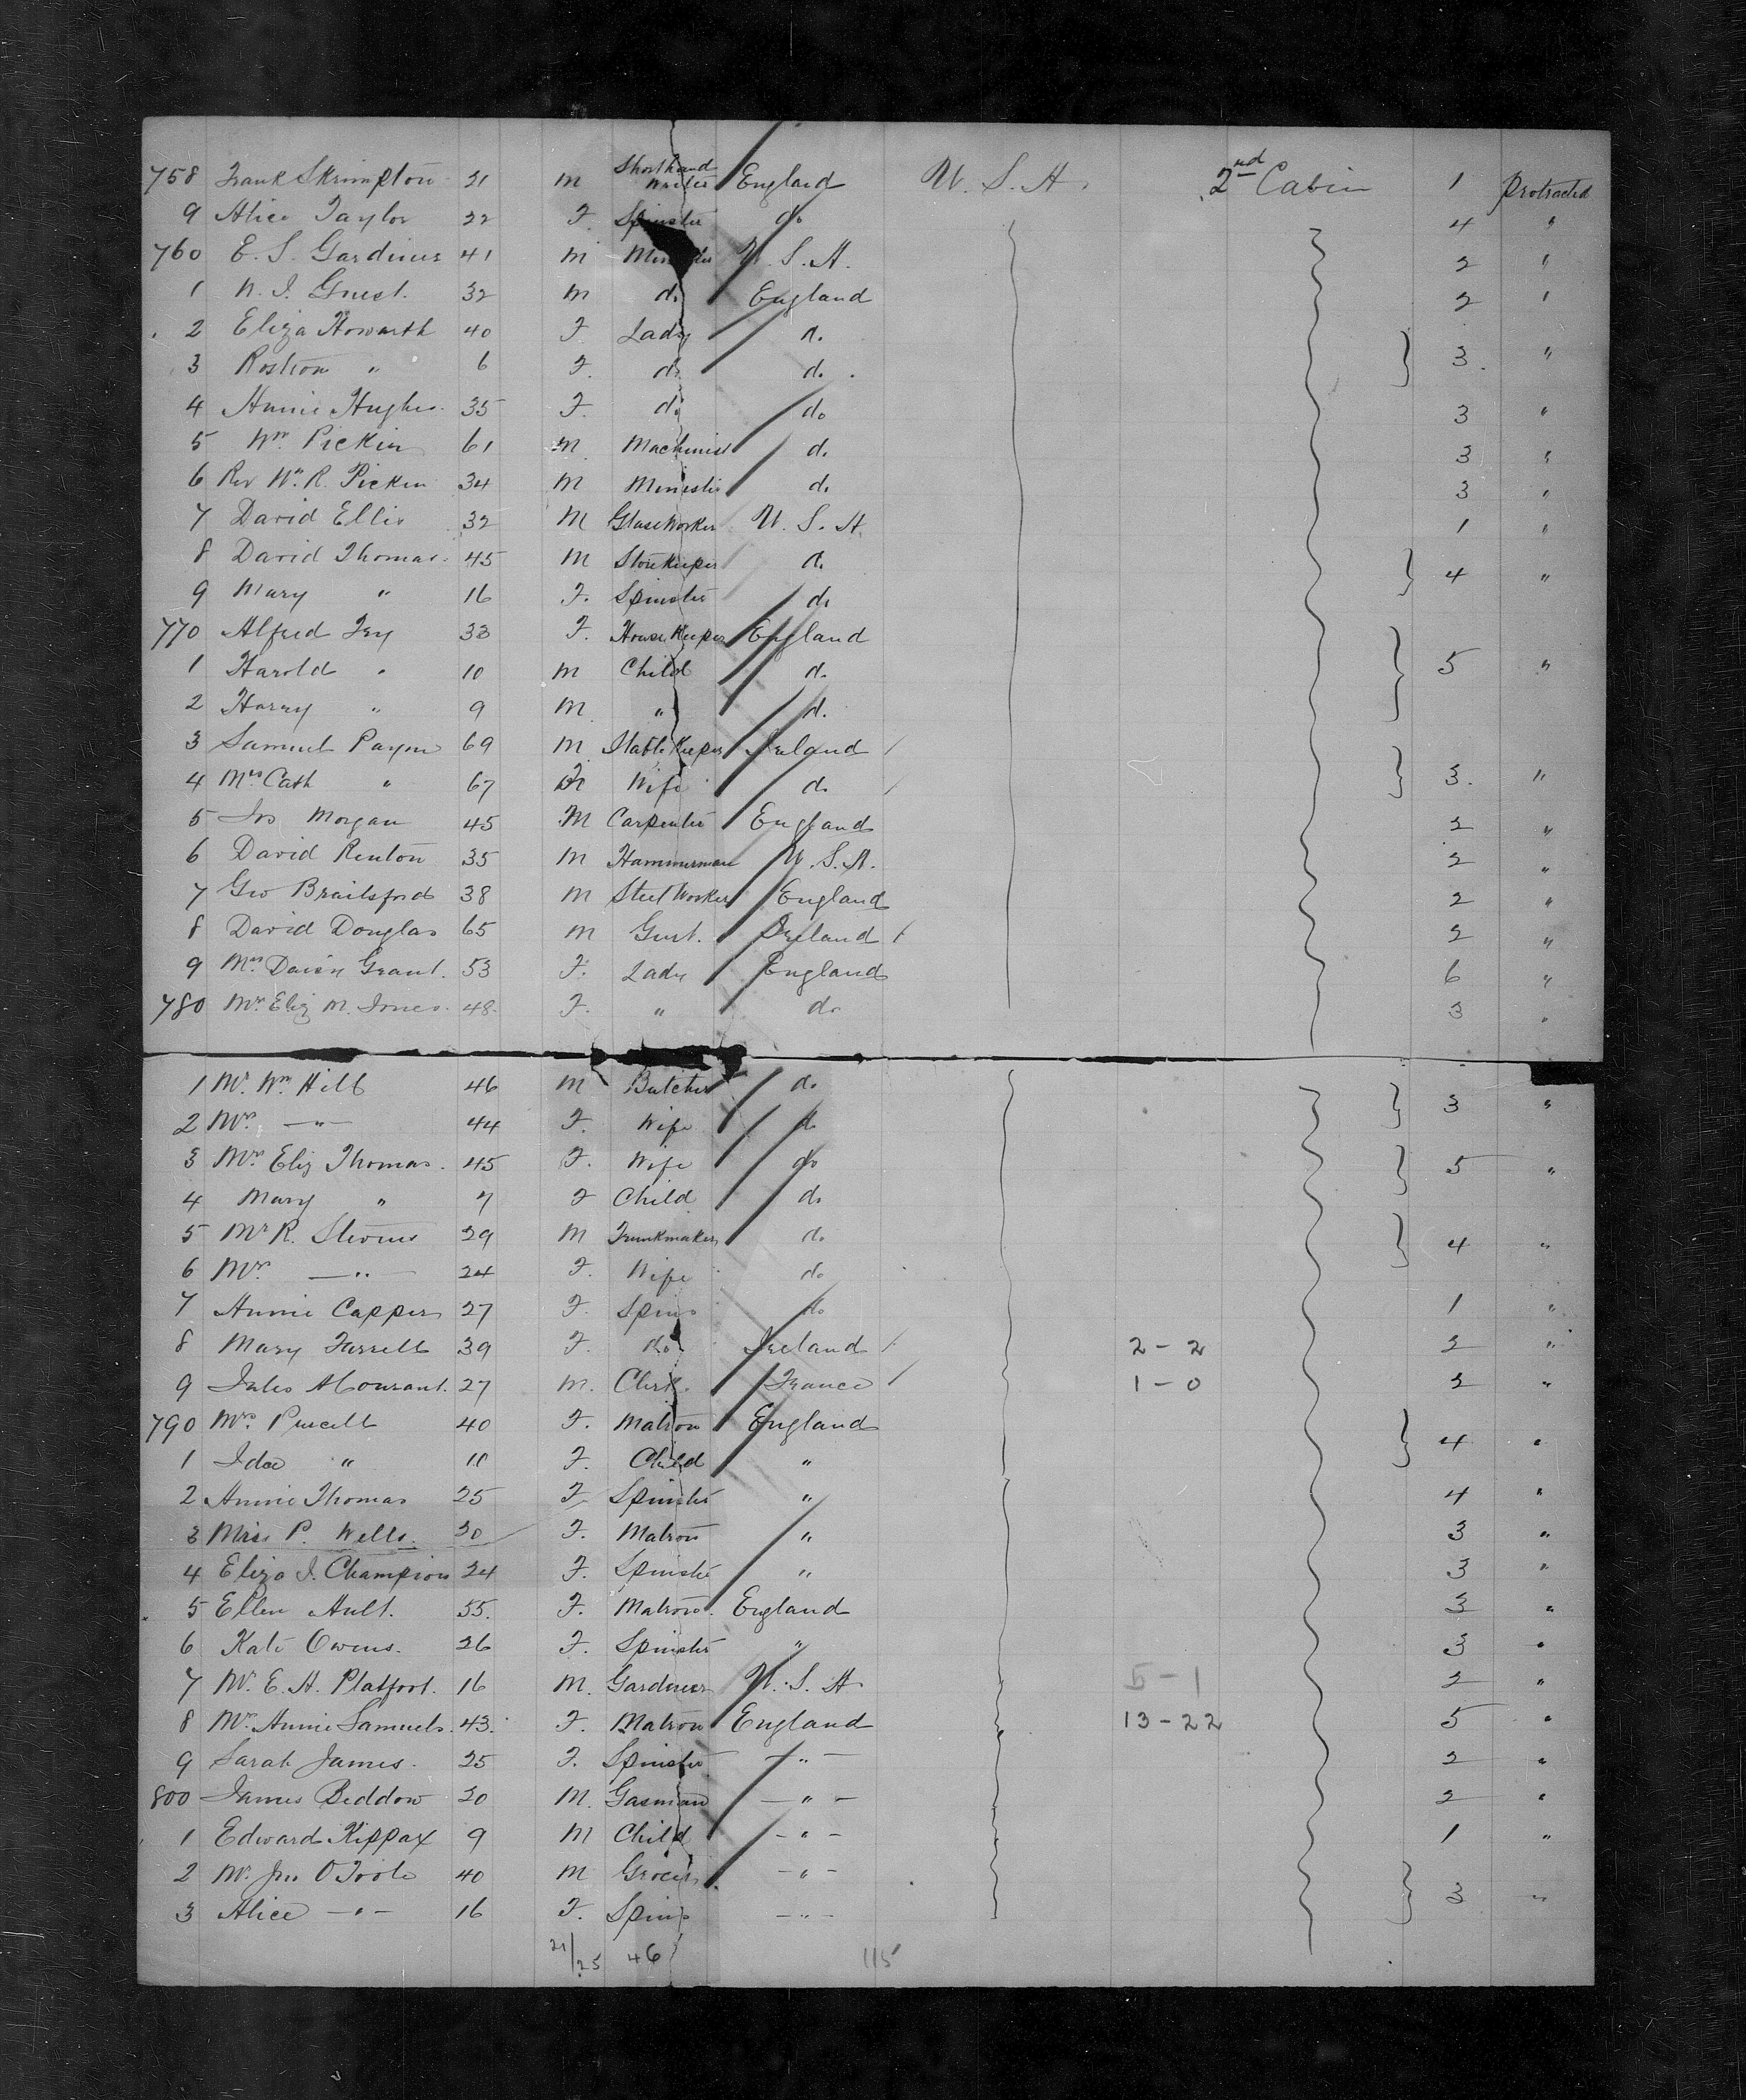 758 Frank Skrimpton 21 M Shorthand Writer England U.S.A. 2nd Cabin 1 Protracted
9 Alice Taylor 22 F. Spinster do 4 "
760 E. S. Gardiner 41 M U.S.A. 2 "
1 32 M do England 2 "
2 Eliza Howarth 40 F. Lady do
3 Rostron " 6 F. do do. 3. "
4 Annie Hughes 35 F. do do 3 "
5 Wm Pickin 61 M. Machinist do 3 "
6 Rev Wm. R. Pickin 34 M Minister do 3 "
7 David Ellis 32 M Glass Worker U.S.A. 1 "
8 David Thomas. 45 M Storekeeper do 4 "
9 Mary " 16 F. Spinster do
770 Alfred 33 F. House Keeper England
1 Harold " 10 M Child do 5 "
2 Harry " 9 M. " do.
3 Samuel Payne 69 M. Stable Keeper Ireland /
4 Mrs Cath " 67 F Wife do / 3. "
5 Jos Morgan 45 M Carpenter England 2 "
6 David Renton 35 M Hammerman U.S.A. 2 "
7 Geo Brailsford 38 M Steel Worker England 2 "
8 David Douglas 65 M Ireland / 2 "
9 Mrs Grant. 53 F. Lady England 6 "
780 Mrs Eliz M. Jones. 48. F. " do 3 "
1 Mr. Wm Hill 46 M Butcher do 3 "
2 Mrs —"— 44 F. Wife do
3 Mrs. Eliz Thomas. 45 F. Wife do 5 "
4 Mary " 7 F Child do
5 Mr R. Stevens 29 M Trunkmaker do 4 "
6 Mrs. —"— 24 F. Wife do
7 Annie Capper 27 F. Spins do 1 "
8 Mary Farrell 39 F. do Ireland / 2-2 2 "
9 Jules 27 M. Clerk. France / 1-0 2 "
790 Mrs Purcell 40 F. Matron England 4 "
1 Ida " 10 F. Child "
2 Annie Thomas 25 F. Spinster " 4 "
3 Miss P. Wells. 30 F. Matron " 3 "
4 Eliza J. Champion 24 F. Spinster " 3 "
5 Ellen Ault. 55. F. Matron. England 3 "
6 Kate Owens. 26 F. Spinster " 3 "
7 Mr. E. H. Platfoot. 16 M. Gardener U.S.A. 5-1 2 "
8 Mrs. Annie Samuels. 43. F. Matron England 13-22 5 "
9 Sarah James. 25 F. Spinster —"— 2 "
800 James Beddow 20 M. Gasman —"— 2 "
1 Edward Kippax 9 M Child -"- 1 "
2 Mr. Jno O'Toole 40 M Grocer -"-
3 Alice -"- 16 F. Spins -"- 3 "
21/25 46 115